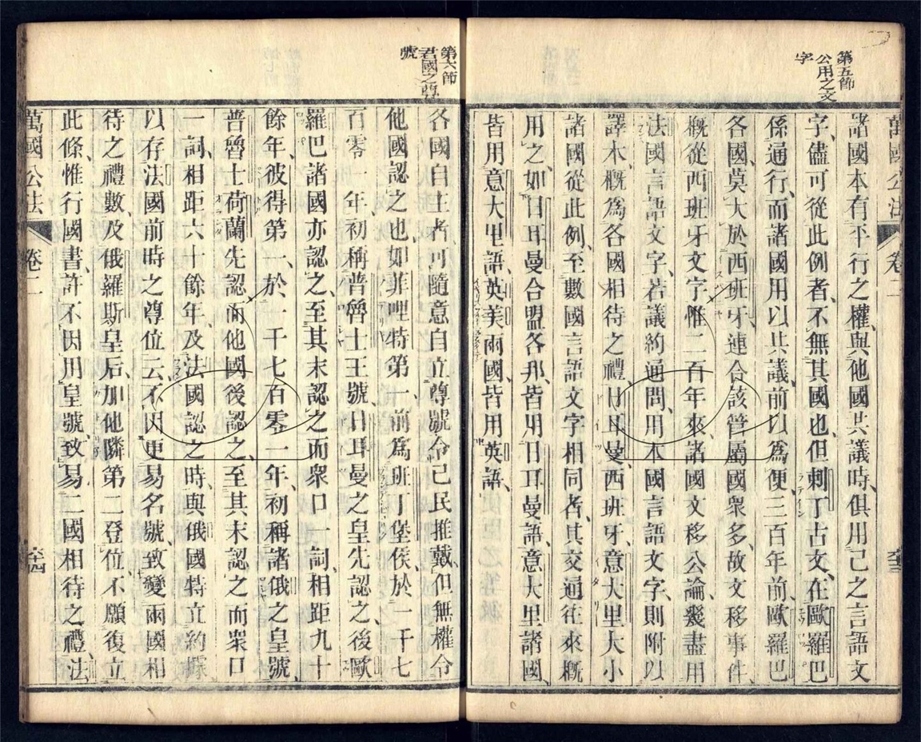 第五節
公用之文
字
萬國公法
卷二
諸國本有平行之權與他國共議時俱用己之言語文
字儘可從此例者不無其國也但剌丁古文在歐羅巴
係通行而諸國用以共議前以爲便三百年前歐羅巴
各國莫大於西班牙連合該管屬國衆多故文移事件
概從西班牙文字惟二百年來諸國文移公論幾盡用
法國言語文字若議約通問用本國言語文字則附以
譯本概爲各國相待之禮日耳曼西班牙意大里大小
諸國從此例至數國言語文字相同者其交通往來概
用之如日耳曼合盟各邦皆用日耳曼語意大里諸國
皆用意大里語英美兩國皆用英語
第六節
君國之尊
號
各國自主者可隨意自立尊號令己民推戴但無權令
他國認之也如菲哩特第一前爲班丁堡侯於一千七
百零一年初稱普魯士王號日耳曼之皇先認之後歐
羅巴諸國亦認之至其末認之而衆口一詞相距九十
餘年彼得第一於一千七百零一年初稱諸俄之皇號
普魯士荷蘭先認而他國後認之至其末認之而衆口
一詞相距六十餘年及法國認之時與俄國特立約據
以存法國前時之尊位云不因更易名號致變兩國相
待之禮數及俄羅斯皇后加他隣第二登位不願復立
此條惟行國書許不因用皇號致易二國相待之禮法
萬國公法
卷二